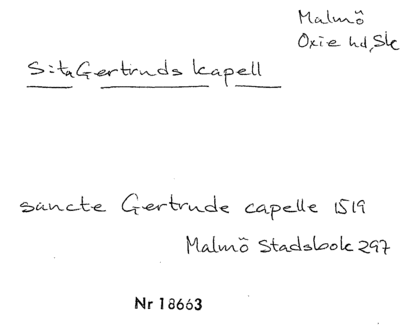 Malmö
Oxie hd, Sk
S:ta Gertruds kapell
sancte Gertrude capelle 1519
Malmö Stadsbok 297
Nr 18663